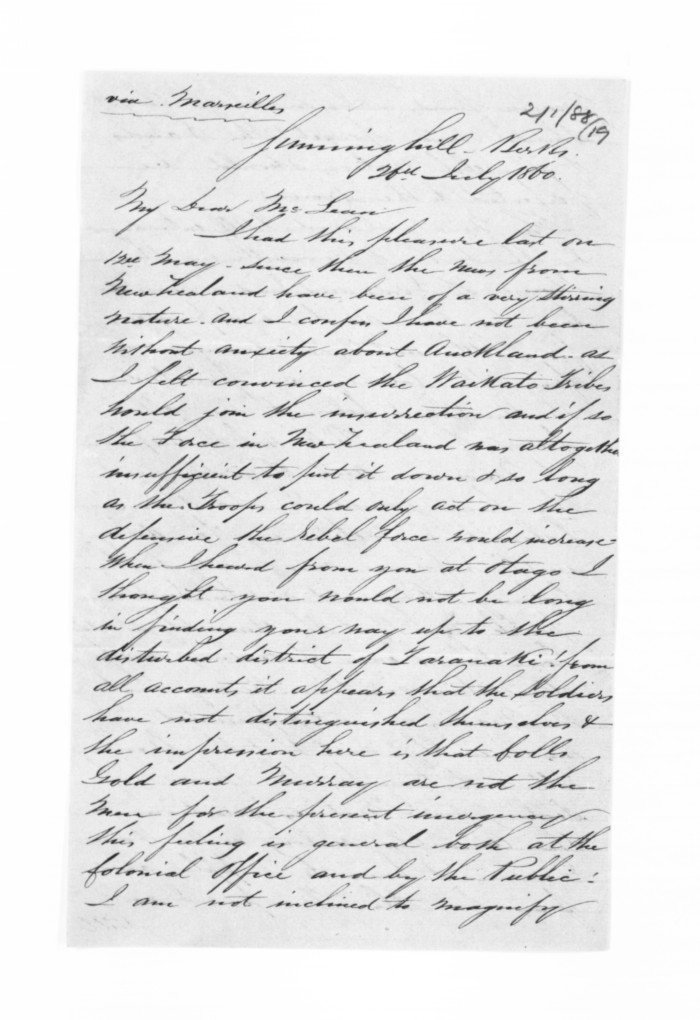 via Marseilles
2/1/88
(19
Sunninghill - Berks.
26th July 1860.
My Dear McLean
I had this pleasure last on
12th May - since then the news from
New Zealand have been of a very stirring
nature. and I confess I have not been
without anxiety about Auckland - as
I felt convinced the Waikato Tribes
would join the insurrection and if so
the Force in New Zealand was altogether
insufficient to put it down & so long
as the Troops could only act on the
defensive the Rebel force would increase
When I heard from you at Otago I
thought you would not be long
in finding your way up to the
disturbed district of Taranaki! from
all accounts it appears that the Soldiers
have not distinguished themselves &
the impression here is that Colls
Gold and Murray are not the
Men for the present imergency.
this feeling is general both at the
Colonial Office and by the Public:
I am not inclined to magnify